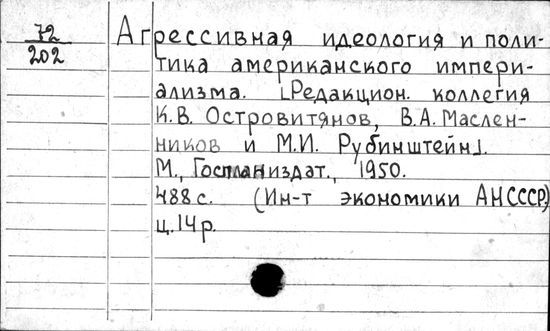 72
202
Агрессивная идеология и поли-
тика американского импери-
ализма. [Редакцион. коллегия
К.В. Островитянов, В.А. Маслен-
ников и М.И. Рубинштейн].
М., Госпланиздат., 1950.
488 с. (Ин-т экономики АН СССР)
ц. 14 р.